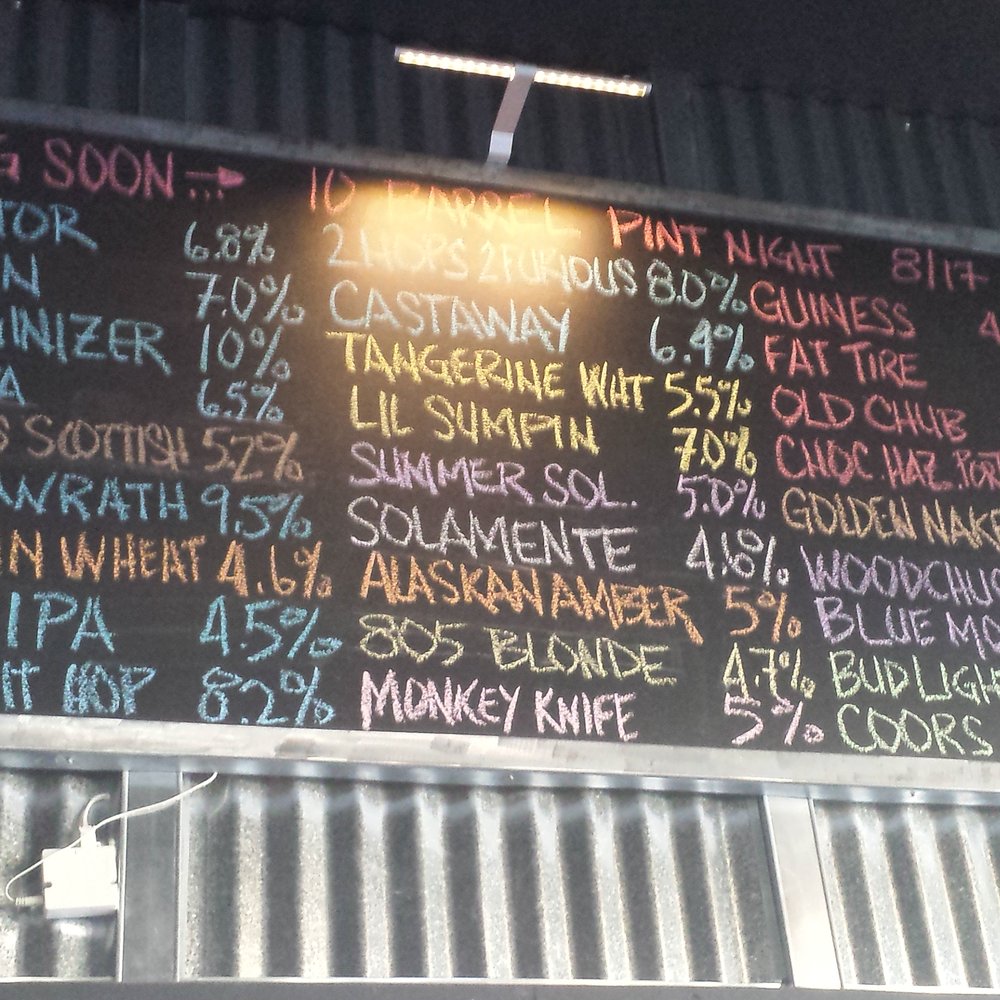 G SOON → 10 BARREL PINT NIGHT 8/17
TOR 6.8%
N 7.0%
INIZER 10%
A 6.5%
S SCOTTISH 5.2%
WRATH 9.5%
N WHEAT 4.6%
IPA 4.5%
IT HOP 8.2%
2 HOPS 2 FURIOUS 8.0%
CASTAWAY 6.4%
TANGERINE WHT 5.5%
LIL SUMPIN 7.0%
SUMMER SOL. 5.0%
SOLAMENTE 4.8%
ALASKAN AMBER 5%
805 BLONDE 4.7%
MONKEY KNIFE 5%
GUINESS 4
FAT TIRE
OLD CHUB
CHOC. HAZ. PORT
GOLDEN NAKE
WOODCHUC
BLUE MO
BUD LIGH
COORS